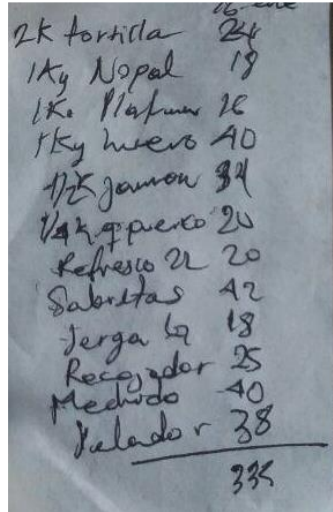 16-ene
2K tortilla 24
1Kg Nopal 18
1K. Platano 16
1Kg huevo 40
1/2K jamon 34
1/4K q puerco 20
Refresco 2L 20
Sabritas 42
Jerga la 18
Recogedor 25
Mechudo 40
Pelador 38
335